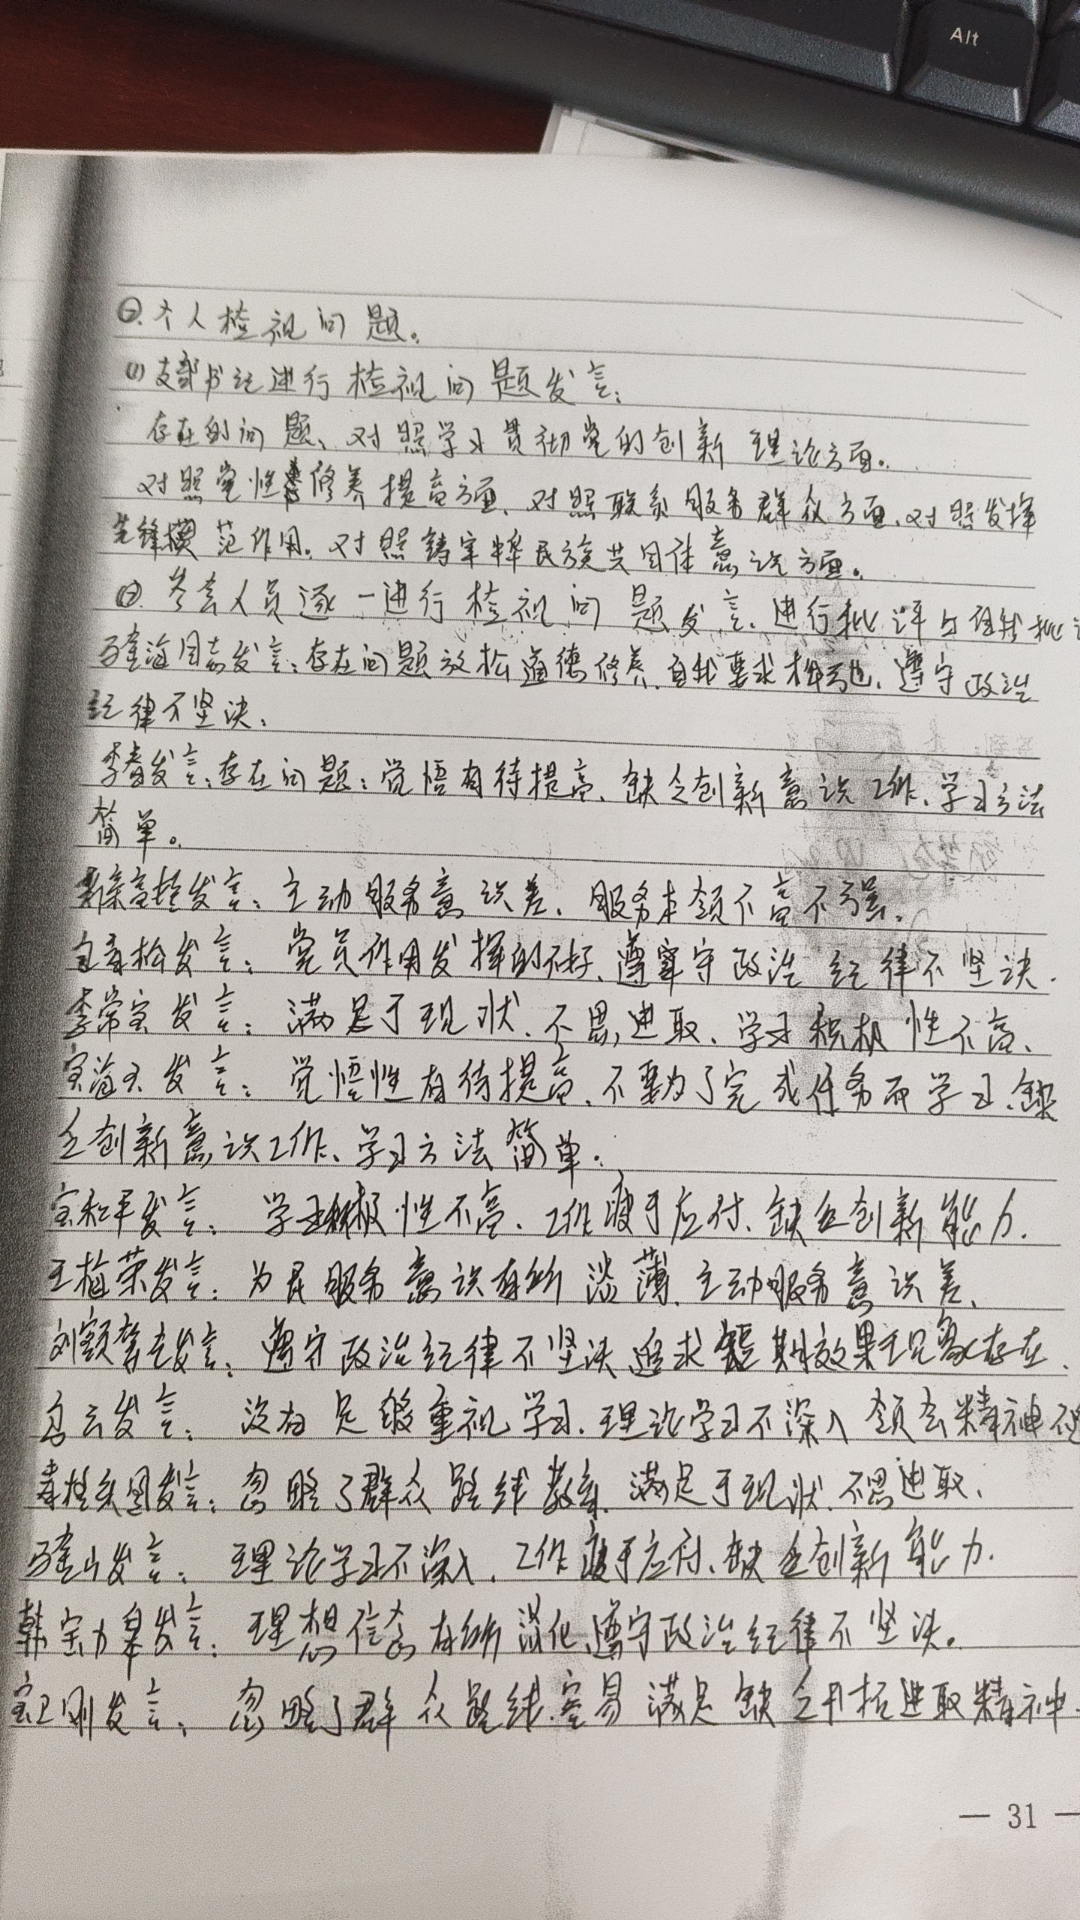 Alt
②.个人检视问题。
(1)支部书记进行检视问题发言:
存在的问题、对照学习贯彻党的创新理论方面。
对照党性修养提高方面、对照联系服务群众方面、对照发挥
先锋模范作用。对照铸牢中华民族共同体意识方面。
②.参会人员逐一进行检视问题发言、进行批评与自我批
海同志发言:存在问题放松道德修养、自我要求、遵守政治
纪律不坚决、
李春发言:存在问题:觉悟有待提高、缺乏创新意识工作、学习方法
简单。
发言:主动服务意识差、服务本领不高不强、
松发言:党员作用发挥的不好、遵守政治纪律不坚决.
李常宝发言:满足于现状、不思进取、学习积极性不高、
发言:觉悟性有待提高、不要为了完成任务而学习、缺
乏创新意识工作、学习方法简单.
宝和平发言:学习积极性不高、工作疲于应付、缺乏创新能力.
王梅荣发言:为民服务意识有所淡薄、主动服务意识差、
刘额发言:遵守政治纪律不坚决追求短期效果现象存在、
乌云发言:没有足够重视学习、理论学习不深入领会精神不
发言:忽略了群众路线教育、满足于现状、不思进取、
山发言:理论学习不深入、工作疲于应付、缺乏创新能力.
韩宝力皋发言:理想信念有所淡化、遵守政治纪律不坚决。
宝卫刚发言:忽略了群众路线、容易满足缺乏开拓进取精神.
— 31 —